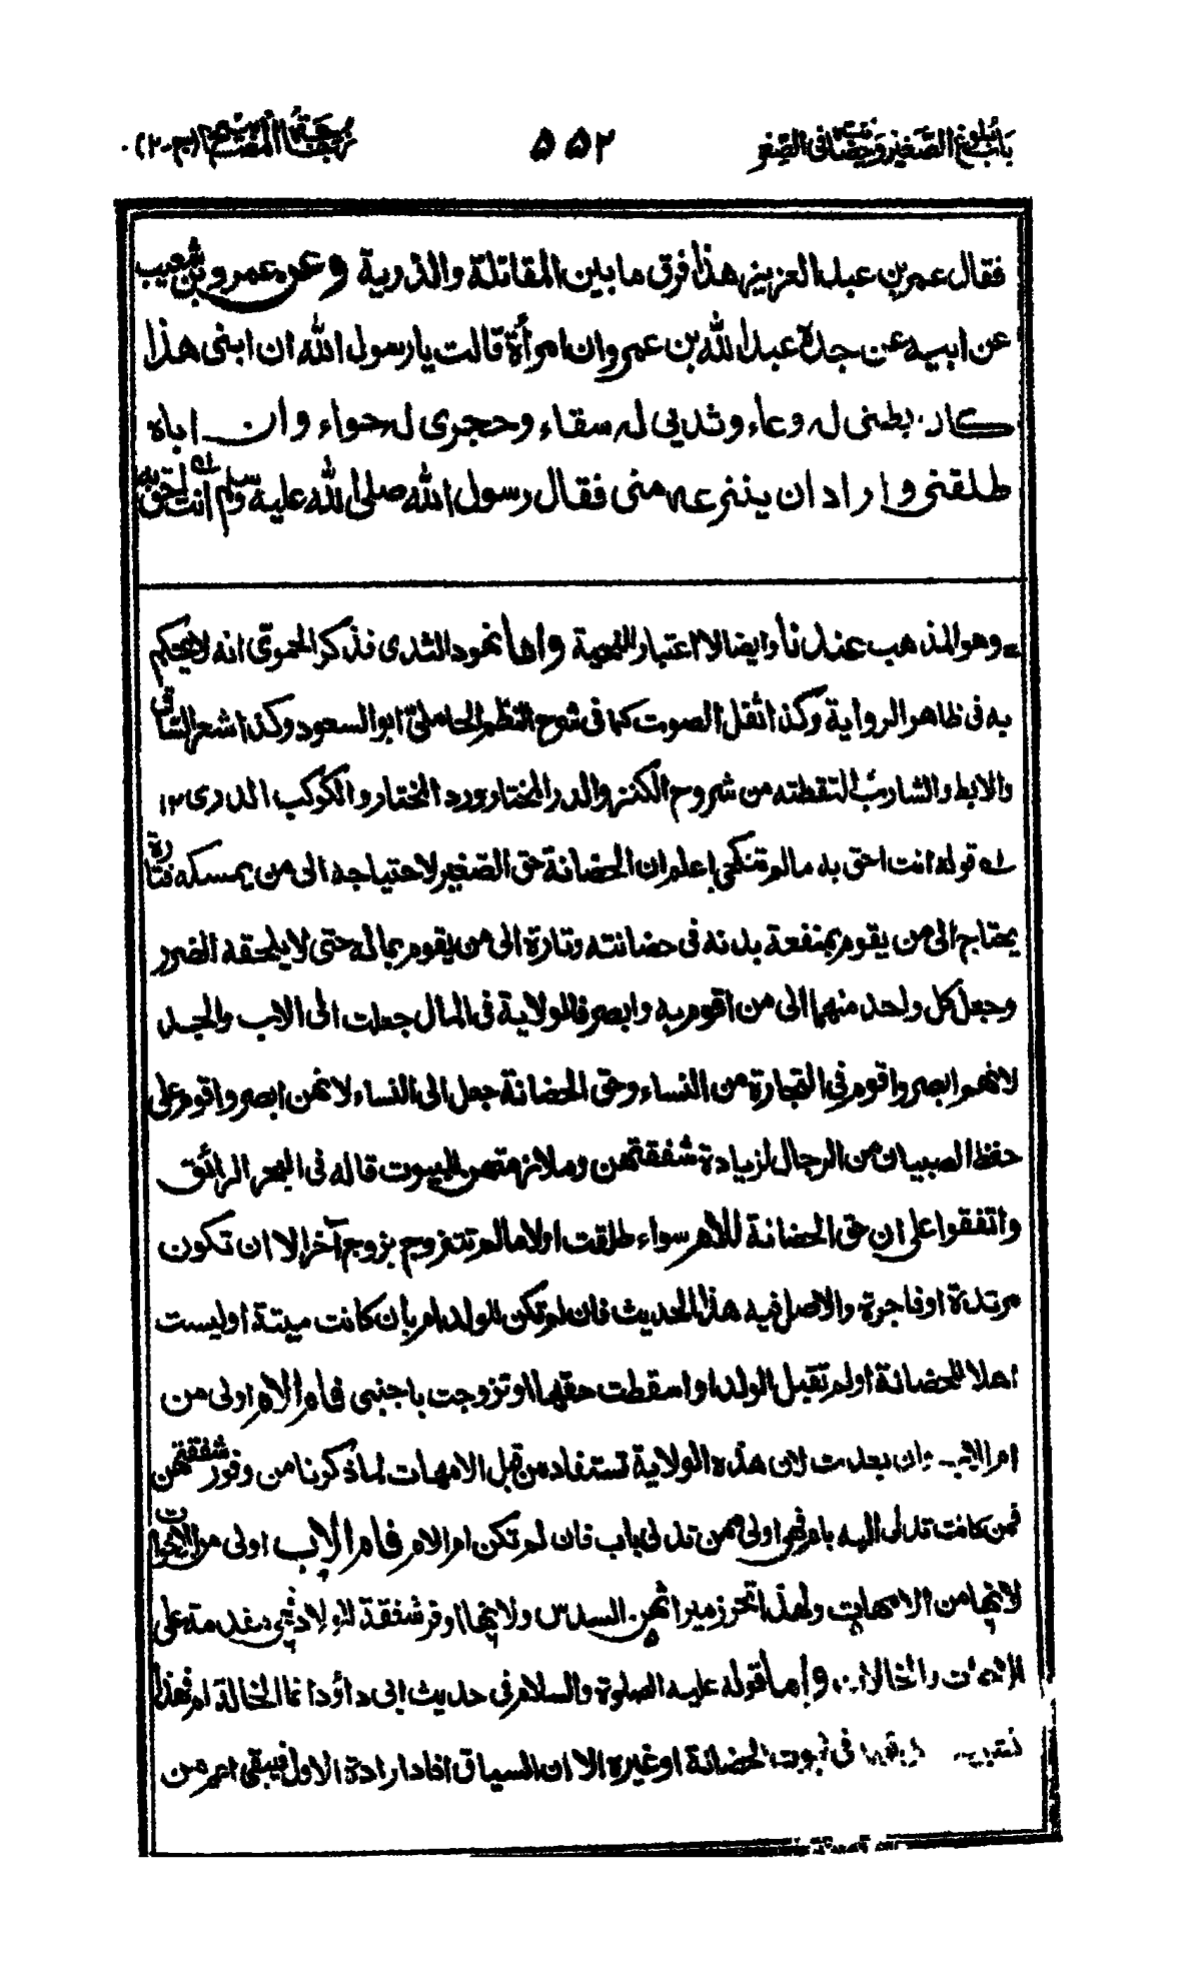 باب بلوغ الصغير وحضانته فى الصغر ۵۵۲ (ج-۲)
فقال عمر بن عبد العزيز هذا فرق ما بين المقاتلة والذرية وعن عمرو بن شعيب
عن ابيه عن جده عبد الله بن عمرو ان امرأة قالت يا رسول الله ان ابنى هذا
كان بطنى له وعاء وثديى له سقاء وحجرى له حواء وان اباه
طلقنى واراد ان ينزعه منى فقال رسول الله صلى الله عليه وسلم انت احق به
= وهو المذهب عندنا وايضا لا اعتبار للحية واما نهود الثدى فذكر الحموى انه لا يحكم
به فى ظاهر الرواية وكذا ثقل الصوت كما فى شرح النظم الحاملى ابو السعود وكذا شعر الساق
والابط والشارب التقطته من شروح الكنز والدر المختار ورد المختار والكوكب الدرى ۱۲
له قوله انت احق به مالم تنكحى اعلم ان الحضانة حق الصغير لاحتياجه الى من يمسكه فتارة
يحتاج الى من يقوم بمنفعة بدنه فى حضانته وتارة الى من يقوم بماله حتى لا يلحقه الضرر
وجعل كل واحد منهما الى من اقوم به وابصر فالولاية فى المال جعلت الى الاب والجد
لانهم ابصر واقوم فى التجارة من النساء وحق الحضانة جعل الى النساء لانهن ابصر واقوم على
حفظ الصبيان من الرجال لزيادة شفقتهن وملازمتهن البيوت قاله فى البحر الرائق
واتفقوا على ان حق الحضانة للام سواء طلقت اولا مالم تتزوج بزوج آخر الا ان تكون
مرتدة او فاجرة والاصل فيه هذا الحديث فان لم تكن للولد ام بان كانت ميتة او ليست
اهلا للحضانة او لم تقبل الولد او اسقطت حقها او تزوجت باجنبى فام الام اولى من
ام الاب وان بعدت لان هذه الولاية تستفاد من قبل الامهات لما ذكرنا من وفور شفقتهن
فمن كانت تدلى اليه بام فهى اولى ممن تدلى باب فان لم تكن ام الام فام الاب اولى من الاخوات
لانها من الامهات ولهذا تحرز ميراثهن السدس ولانها اوفر شفقة للاولاد فهى مقدمة على
والخالات واما قوله عليه الصلوة والسلام فى حديث ابى داؤد انما الخالة ام فهذا
فى ثبوت الحضانة او غيره الا ان السياق افاد ارادة الاول فيبقى اعم من